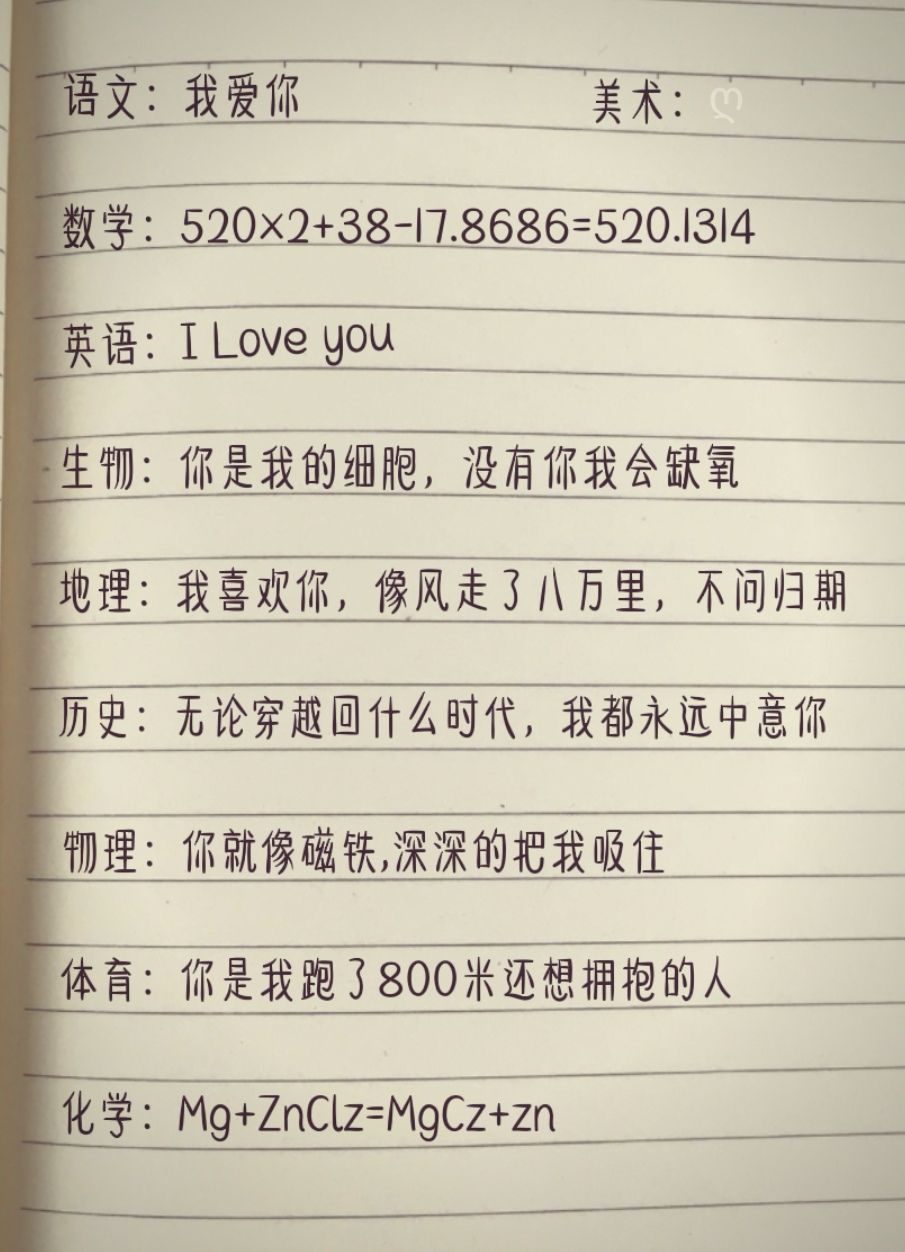 语文：我爱你 美术：ღ
数学：520×2+38-17.8686=520.1314
英语：I Love you
生物：你是我的细胞，没有你我会缺氧
地理：我喜欢你，像风走了八万里，不问归期
历史：无论穿越回什么时代，我都永远中意你
物理：你就像磁铁,深深的把我吸住
体育：你是我跑了800米还想拥抱的人
化学：Mg+ZnClz=MgCz+zn